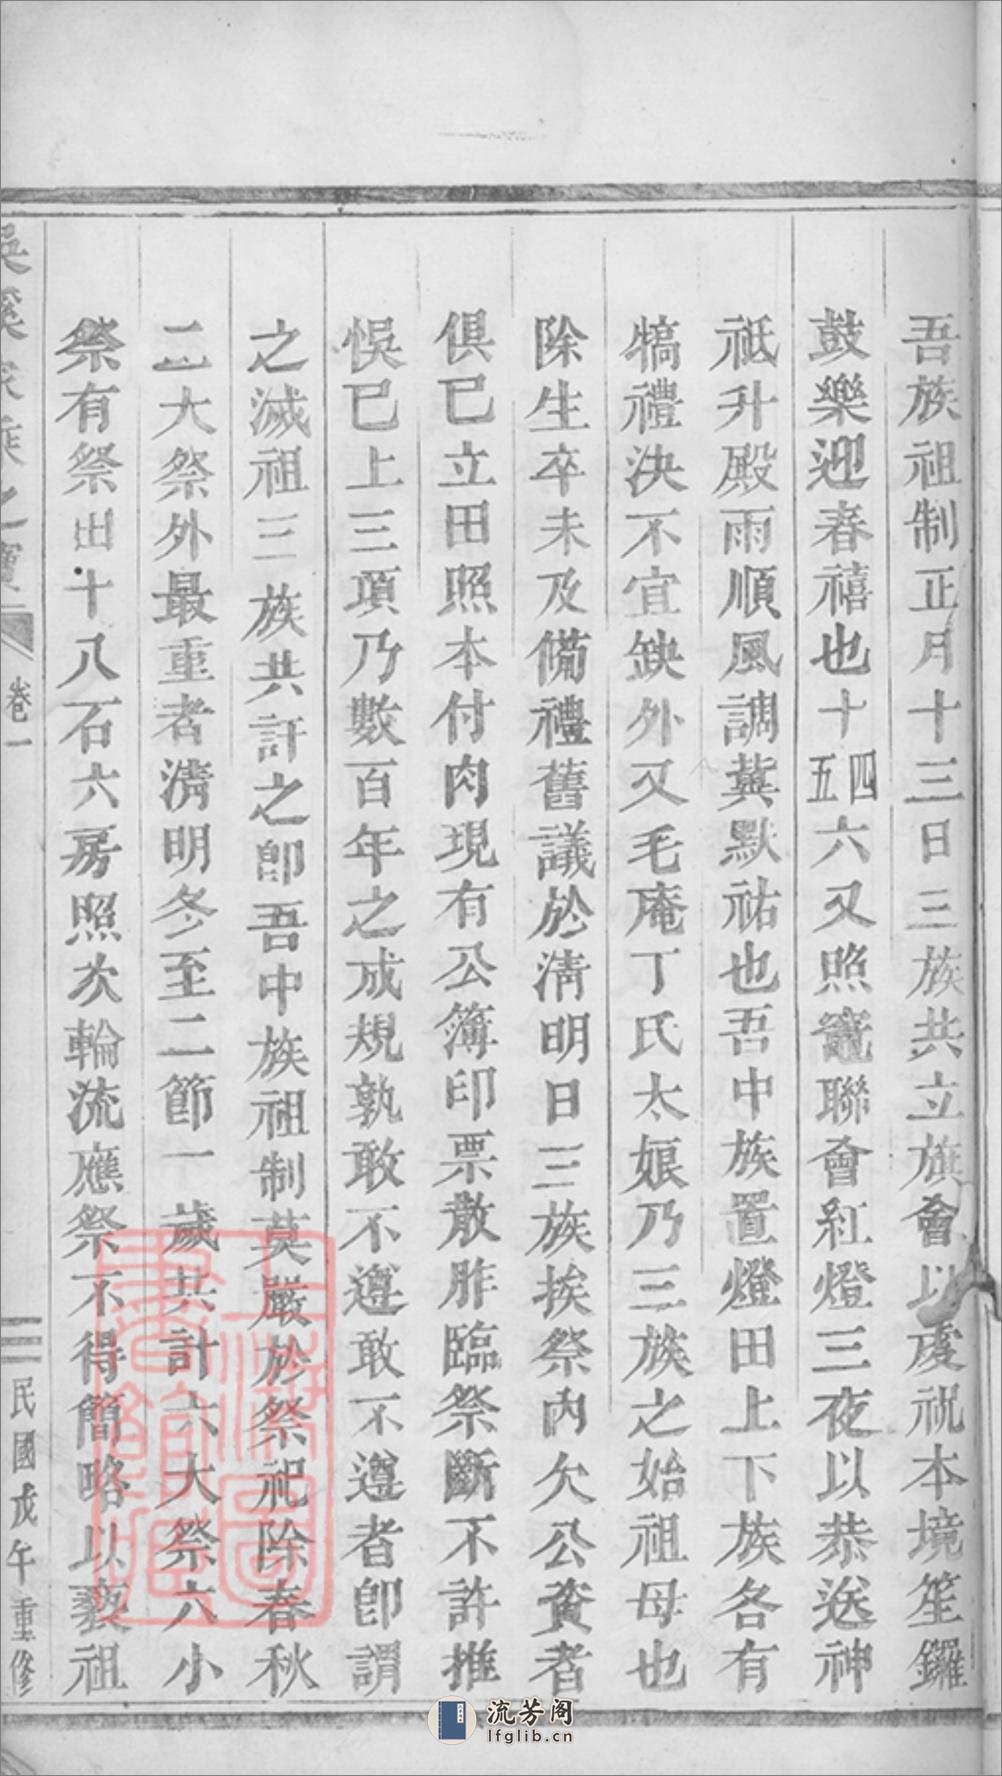 吾族祖制正月十三日三族共立旗會以虔祝本境笙鑼
鼓樂迎春禧也十四五六又照竈聯會紅燈三夜以恭送神
祇升殿雨順風調冀默祐也吾中族置燈田上下族各有
犒禮決不宜缺外又毛庵丁氏太娘乃三族之始祖母也
除生卒未及備禮舊議於淸明日三族挨祭內欠公資者
俱已立田照本付肉現有公簿印票散胙臨祭斷不許推
悞已上三項乃數百年之成規孰敢不遵敢不遵者卽謂
之滅祖三族共訐之卽吾中族祖制莫嚴於祭祀除春秋
二大祭外最重者淸明冬至二節一歲共計六大祭六小
祭有祭田十八石六房照次輪流應祭不得簡略以褻祖
吳溪家乘之寶
卷一
二
民國戊午重修
流芳阁
lfglib.cn